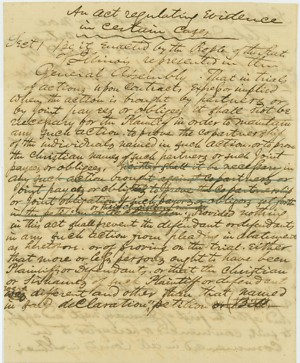 An act regulating Evidence
in certain cases
Sect 1 Be it enacted by the People of the State
of Illinois represented in the
General Assembly: That in trials
of actions upon contract, express or implied
when the action is brought by partners or
by joint payees or obligees, it shall not be
necessary for the Plaintiff, in order to maintain
any such action, to prove the copartnership
of the individuals named in such action, or to prove
the Christian names of such partners, or such joint
payees or obligees;
Provided nothing
in this act shall prevent the defendant or defendants
in any such action, from pleading in abatement
as heretofore, or or proving on the trial either
that more or less persons ought to have been
Plaintiffs or Defendants, or that the Christian
or Sirnames of such Plaintiffs or defendants
is different and other than that named
in said declaration, petition or Bill